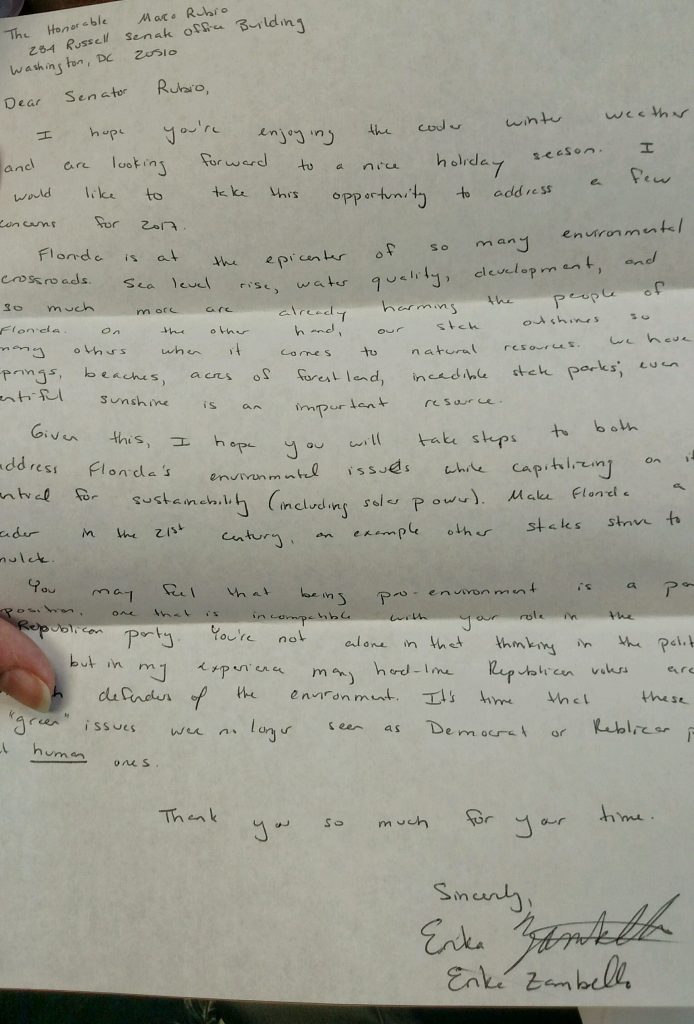 The Honorable Marco Rubio
284 Russell Senate Office Building
Washington, DC 20510
Dear Senator Rubio,
I hope you're enjoying the cooler winter weather
and are looking forward to a nice holiday season. I
would like to take this opportunity to address a few
concerns for 2017.
Florida is at the epicenter of so many environmental
crossroads. Sea level rise, water quality, development, and
so much more are already harming the people of
Florida. On the other hand, our state outshines so
many others when it comes to natural resources. We have
springs, beaches, acres of forest land, incredible state parks; even
entiful sunshine is an important resource.
Given this, I hope you will take steps to both
address Florida's environmental issues while capitalizing on it
ntial for sustainability (including solar power). Make Florida a
ader in the 21st century, an example other states strive to
mulate.
You may feel that being pro-environment is a par
position, one that is incompatible with your role in the
Republican party. You're not alone in that thinking in the polit
but in my experience many hard-line Republican voters are
h defenders of the environment. It's time that these
"green" issues were no longer seen as Democrat or Reblican
human ones.
Thank you so much for your time.
Sincerely,
Erika Zambello
Erika Zambello